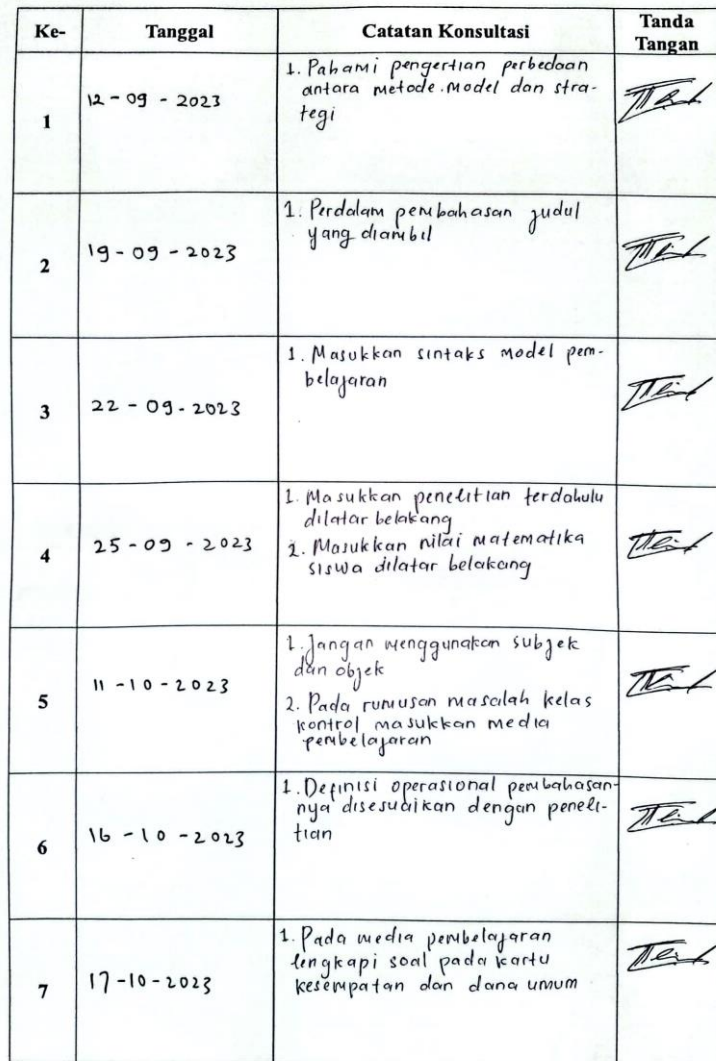 Ke- Tanggal Catatan Konsultasi Tanda
Tangan
1 12 - 09 - 2023 1. Pahami pengertian perbedaan
antara metode. model dan stra-
tegi
2 19 - 09 - 2023 1. Perdalam pembahasan judul
yang diambil
3 22 - 09 - 2023 1. Masukkan sintaks model pem-
belajaran
4 25 - 09 - 2023 1. Masukkan penelitian terdahulu
dilatar belakang
2. Masukkan nilai matematika
siswa dilatar belakang
5 11 - 10 - 2023 1. Jangan menggunakan subjek
dan objek
2. Pada rumusan masalah kelas
kontrol masukkan media
pembelajaran
6 16 - 10 - 2023 1. Definisi operasional pembahasan-
nya disesuaikan dengan peneli-
tian
7 17 - 10 - 2023 1. Pada media pembelajaran
lengkapi soal pada kartu
kesempatan dan dana umum